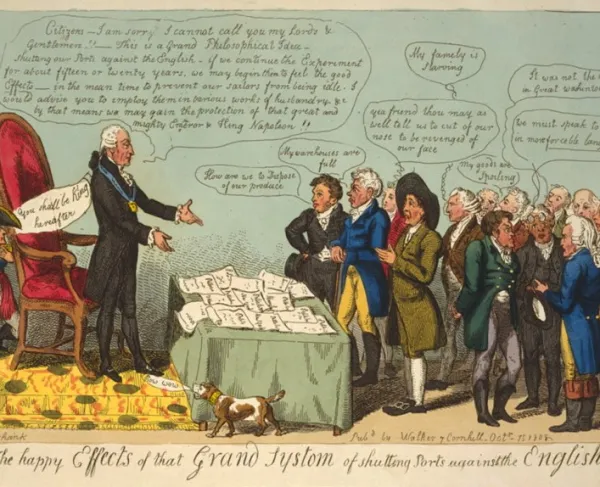 Citizens — I am sorry I cannot call you my Lords &
Gentlemen!! — This is a Grand Philosophical Idea —
shutting our Ports against the English — if we continue the Experiment
for about fifteen or twenty years, we may begin then to feel the good
Effects — in the mean time to prevent our sailors from being idle. I
would advise you to employ them in various works of husbandry, &c
by that means we may gain the protection of that great and
mighty Emperor & King Napoleon!!
You shall be King
hereafter
How are we to Dispose
of our produce
My warehouses are
full
My famely is
Starving
yea friend thou may as
well tell us to cut of our
nose to be revenged of
our face
My goods are
Spoiling
It was not the
in Great
We must speak to
in more forceble
bow wow
Pubd by Walker 7 Cornhill. Octr 15 1808
The happy Effects of that Grand Systom of shutting Ports against the English